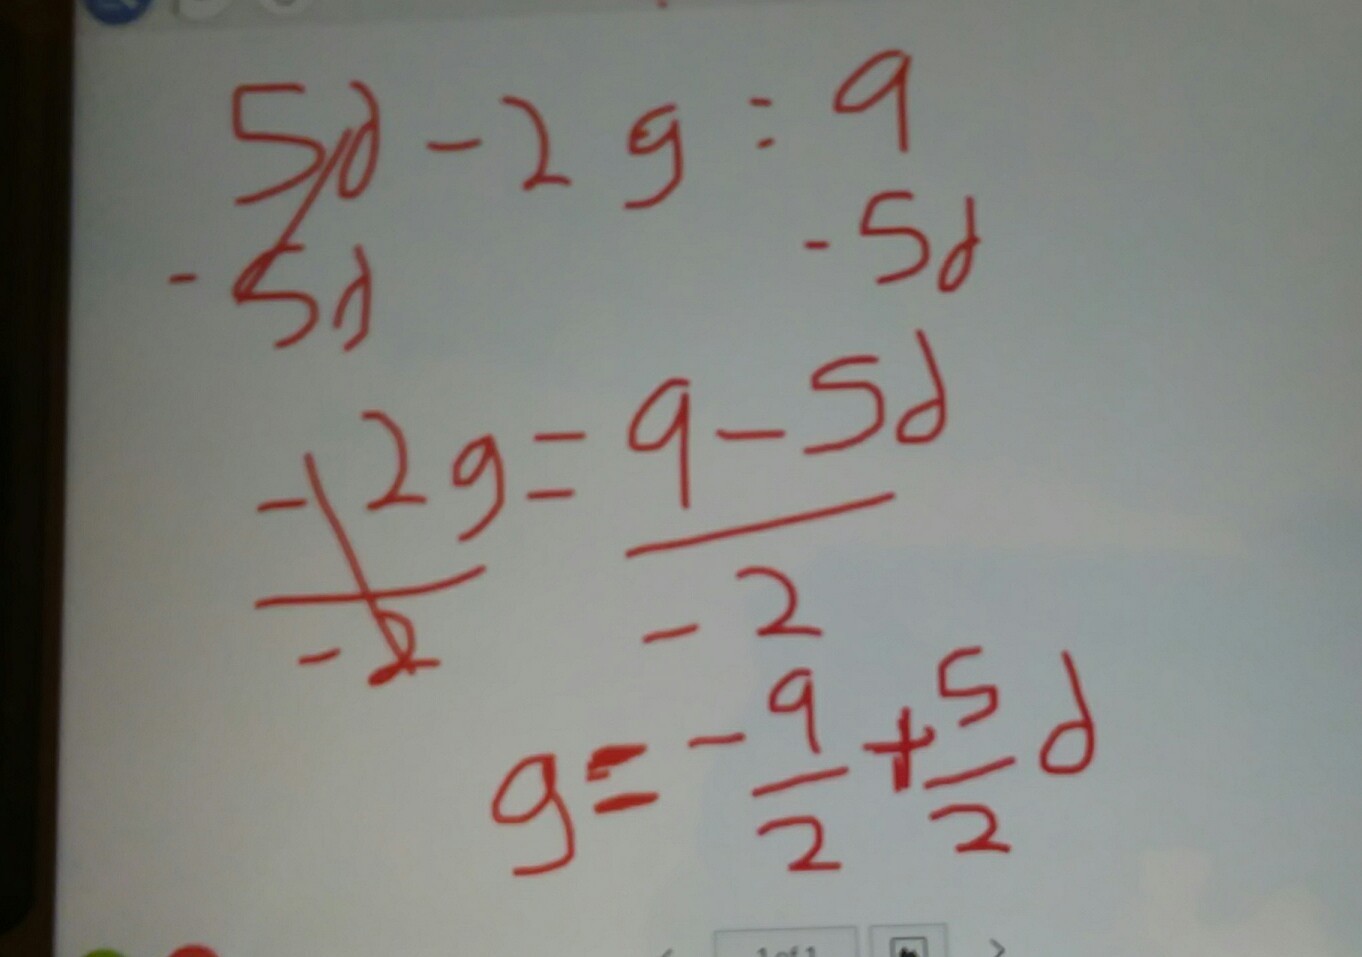 5d - 2g = 9
- 5d - 5d
- 2g = 9 - 5d
- 2 - 2
g = - 9/2 + 5/2 d
1 of 1